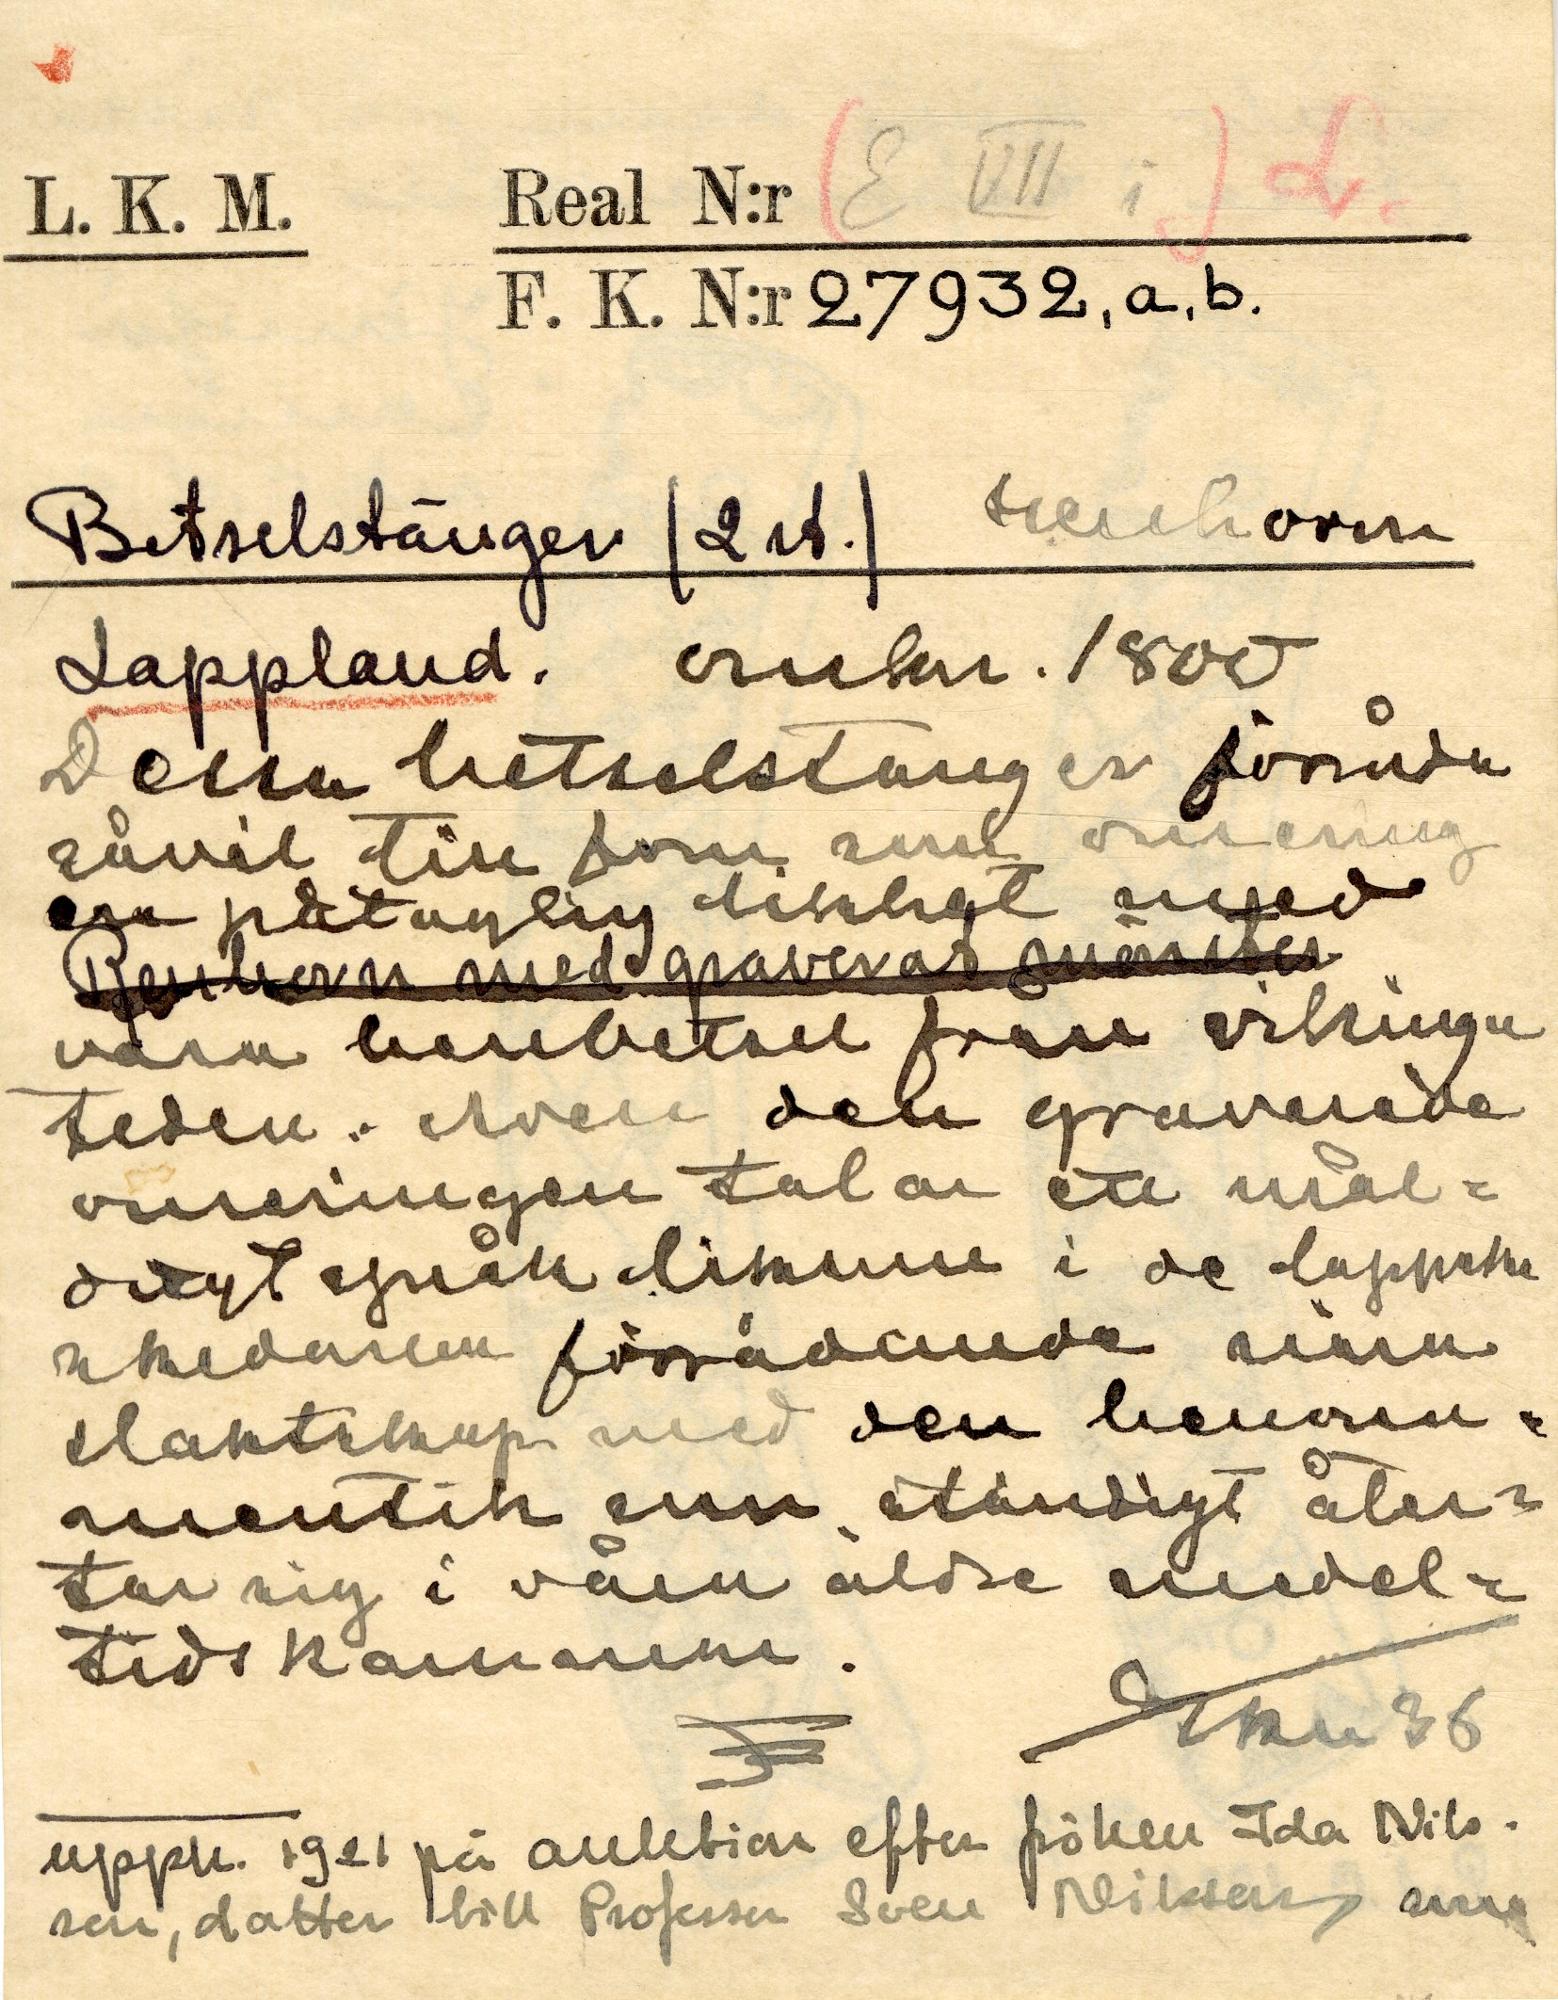 L. K. M. Real N:r (E VII i) L.
F. K. N:r 27932, a, b.
Betselstänger (2 st.) renhorn
Lappland. omkr. 1800
Dessa betselstänger förråda
såväl till form som ornering
en påtaglig likhet med
Benhorn med graverat mönster
våra benbetsel från vikinga
tiden. Även den graverade
orneringen talar ett nål=
digt språk liksom i de lappska
skedarna förrådande nära
släktskap med den benorna=
mentik som ständigt åter=
tar sig i våra äldre medel=
tidskammar.
36
uppk. 1921 på auktion efter fröken Ida Nils-
son, dotter till Professor Sven Nilsson, som